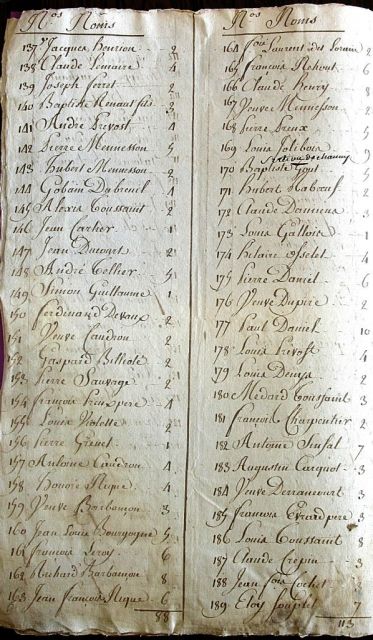 Nos Noms
137 Jacques Heurion 2
138 Claude Lemaire 4
139 Joseph Ferret 2
140 Baptiste Renaut fils 2
141 André Prevost 4
142 Pierre Mennesson 5
143 Hubert Mennesson 2
144 Gobain Dubreuil 4
145 Alexis Toussaint 2
146 Jean Cartier 1
147 Jean 2
148 André Tellier 5
149 Simon Guillaume 1
150 Ferdinand Devaux 2
151 Veuve Caudron 2
152 Gaspard 2
153 Pierre Sauvage 2
154 françois père 4
155 Louis Violette 2
156 Pierre 1
157 Antoine Caudron 4
158 Honoré Nique 4
159 Veuve Barbançon 3
160 Jean Louis Bourgogne 5
161 françois Leroy 6
162 Richard Barbançon 8
163 Jean François Nique 6
88
Nos Noms
164 Jois Laurent des Lorains 2
165 françois 6
166 Claude 8
167 Veuve Mennesson 2
168 Pierre Preux
169 Louis Jolibois
170 Baptiste
171 Hubert 2
172 Claude
173 Louis Gallois 1
174 hilaire 4
175 Pierre Daniel 6
176 Veuve Dupire 2
177 Paul Daniel 10
178 Louis Prevost 4
179 Louis 2
180 Médard Toussaint 3
181 françois Charpentier 2
182 Antoine 7
183 Augustin 3
184 Veuve Derrancourt 3
185 françois Evrard père 3
186 Louis Toussaint 8
187 Claude Crepin 3
188 Jean Jois
189 Eloy Souplet 7
113